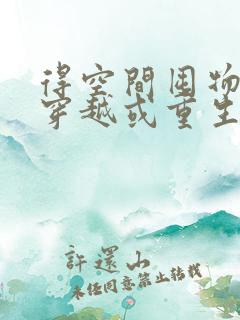 得空間囤物
穿越或重生
許還山
未經同意禁止轉載